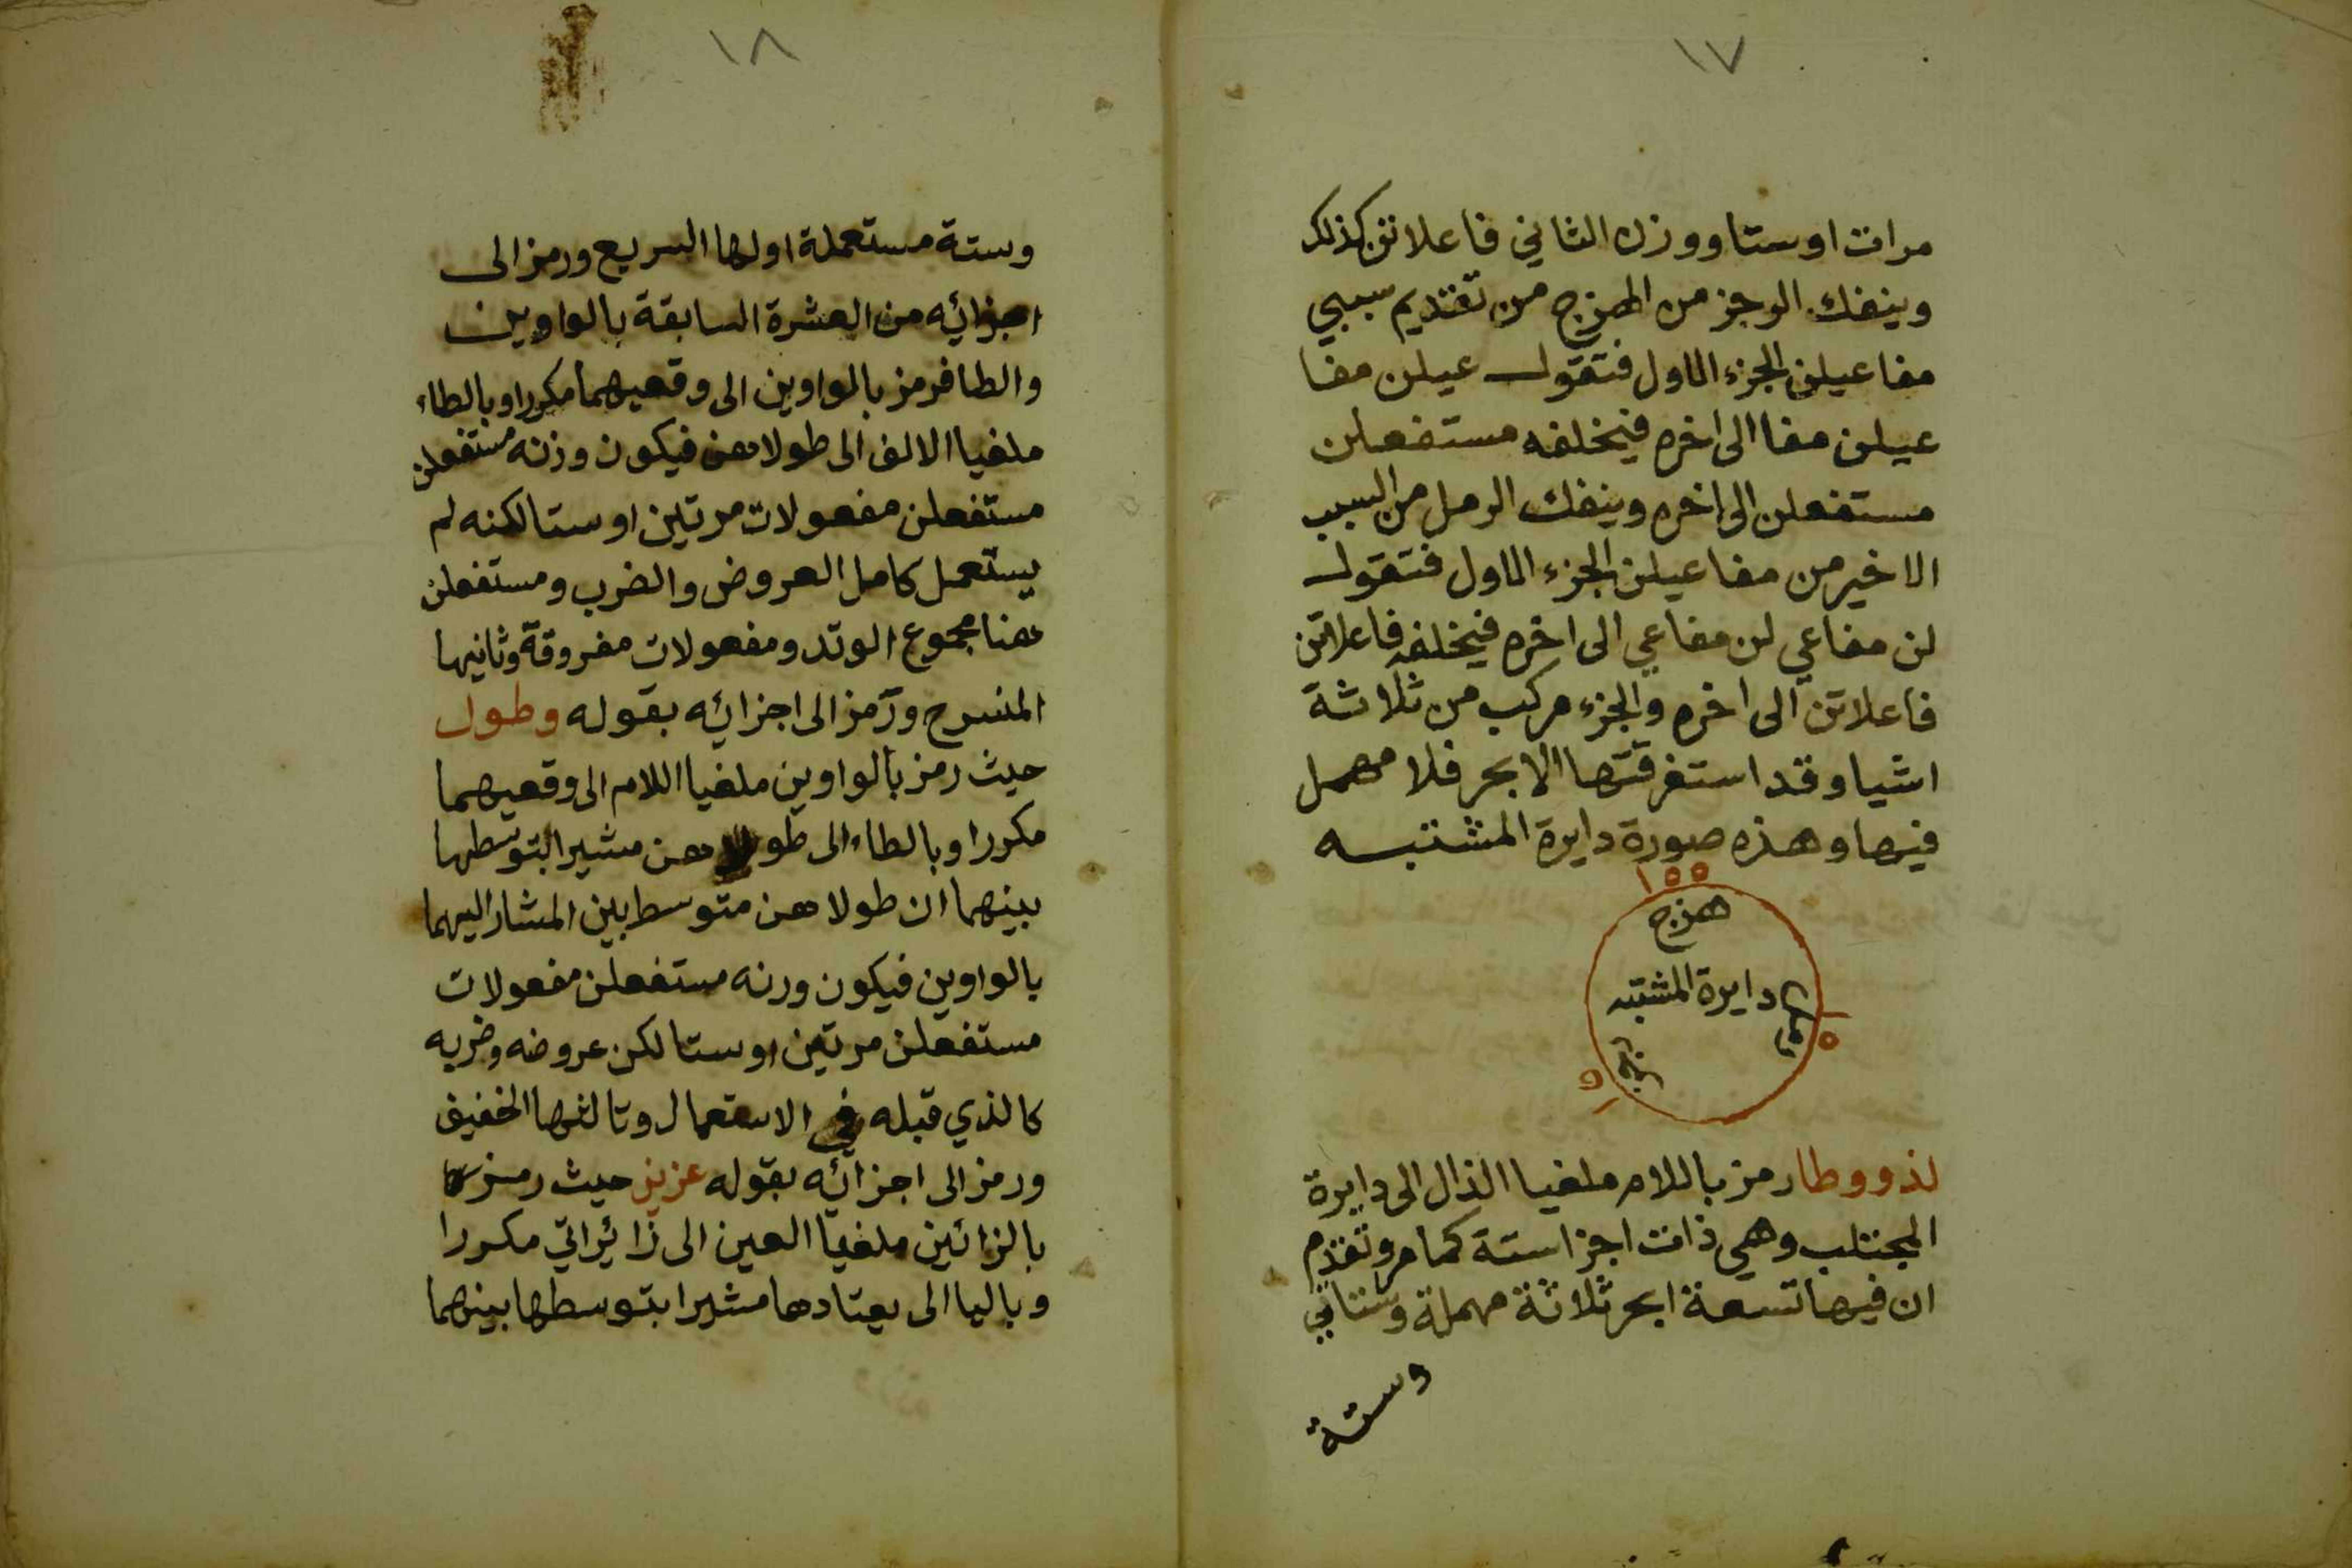 ١٧
مرات او ستا ووزن الثاني فاعلاتن كذلك
وينفك الرجز من الهزج من تقديم سببي
مفاعيلن الجزء الاول فتقول عيلن مفا
عيلن مفا الى اخره فيخلفه مستفعلن
مستفعلن الى اخره وينفك الرمل من السبب
الاخير من مفاعيلن الجزء الاول فتقول
لن مفاعي لن مفاعي الى اخره فيخلفه فاعلاتن
فاعلاتن الى اخره والجزء مركب من ثلاثة
اشيا وقد استغرقتها الابحر فلا مهمل
فيها وهذه صورة دايرة المشتبه
١٥٥
هزج
دايرة المشتبه
رمل
رجز
١٥
١٥
لذ ووطا رمز باللام ملغيا الذال الى دايرة
المجتلب وهي ذات اجزا ستة كما مر وتقدم
ان فيها تسعة ابحر ثلاثة مهملة وستاتي
وستة
١٨
وستة مستعملة اولها السريع ورمز الى
اجزائه من العشرة السابقة بالواوين
والطا فرمز بالواوين الى وقعيهما مكررا وبالطاء
ملغيا الالف الى طولاهن فيكون وزنه مستفعلن
مستفعلن مفعولات مرتين او ستا لكنه لم
يستعمل كامل العروض والضرب ومستفعلن
هنا مجموع الوتد ومفعولات مفروقة وثانيها
المنسرح ورمز الى اجزائه بقوله وطول
حيث رمز بالواوين ملغيا اللام الى وقعيهما
مكررا وبالطاء الى طولاهن مشيرا لتوسطها
بينهما ان طولاهن متوسط بين المشار اليهما
بالواوين فيكون ورنه مستفعلن مفعولات
مستفعلن مرتين او ستا لكن عروضه وضربه
كالذي قبله في الاستعمال وثالثها الخفيف
ورمز الى اجزائه بقوله عزيز حيث رمز
بالزائين ملغيا العين الى زائراتي مكررا
وباليا الى يعتادها مشيرا بتوسطها بينهما